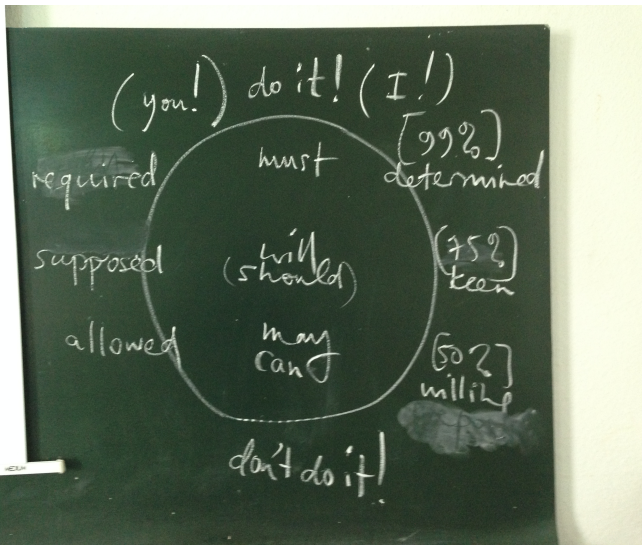 (you!) do it! (I!)
[99%]
required must determined
supposed will (75%)
(should) keen
allowed may [50%]
can willing
don't do it!